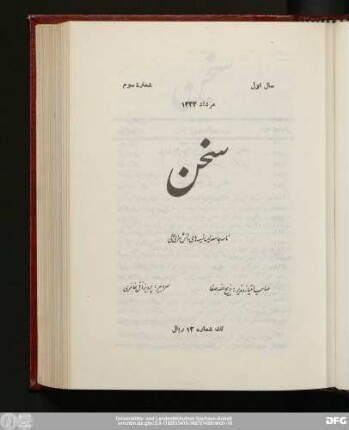 سال اول شمارهٔ سوم
مرداد ۱۳۲۲
سخن
نامه جامعه لیسانسیه‌های دانش‌سرای عالی
صاحب امتیاز و مدیر: ذبیح‌الله صفا سردبیر: پرویز ناتل خانلری
تک شماره ۱۲ ریال
Universitäts- und Landesbibliothek Sachsen-Anhalt
DFG